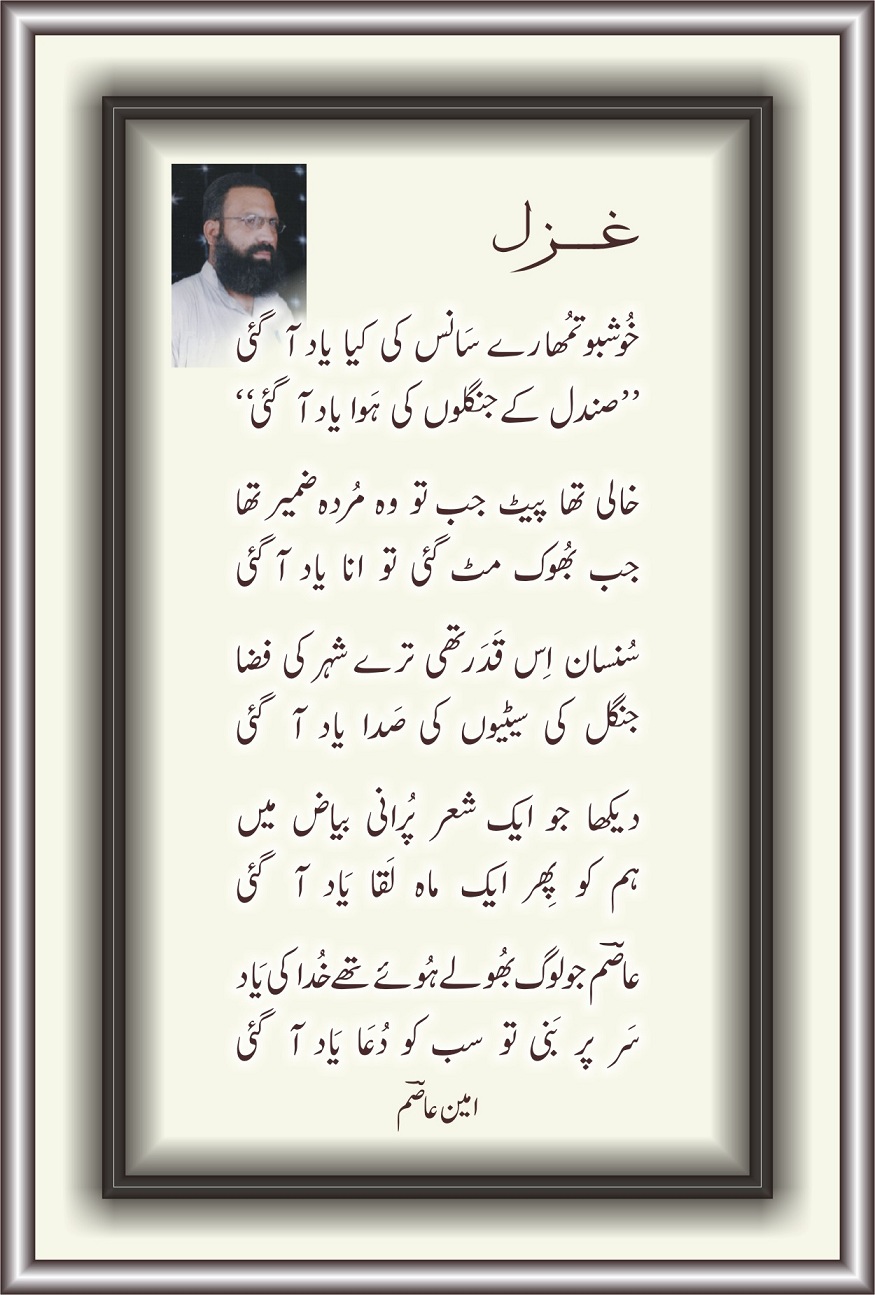 غزل
خُوشبو تمُھارے سَانس کی کیا یاد آ گئی
’’صندل کے جنگلوں کی ہَوا یاد آ گئی‘‘
خالی تھا پیٹ جب تو وہ مُردہ ضمیر تھا
جب بھُوک مٹ گئی تو انا یاد آ گئی
سُنسان اِس قَدَر تھی ترے شہر کی فضا
جنگل کی سیٹیوں کی صَدا یاد آ گئی
دیکھا جو ایک شعر پُرانی بیاض میں
ہم کو پِھر ایک ماہ لَقا یَاد آ گئی
عاصؔم جو لوگ بھُولے ہُوئے تھے خُدا کی یَاد
سَر پر بَنی تو سب کو دُعَا یَاد آ گئی
امین عاصؔم